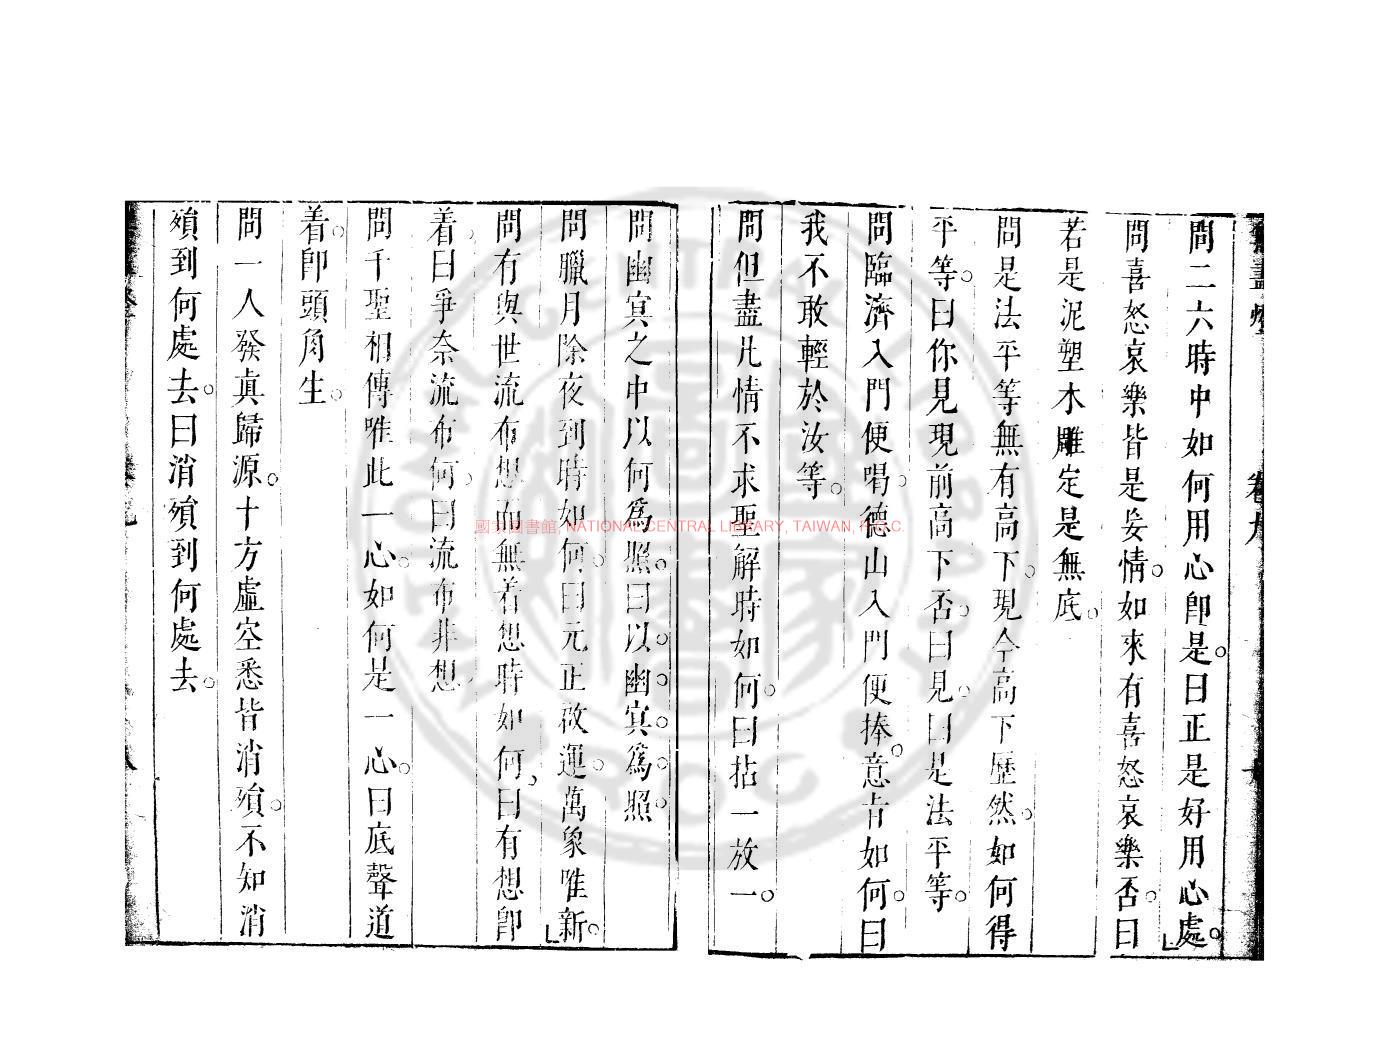 問二六時中如何用心卽是。曰正是好用心處。
問喜怒哀樂皆是妄情。如來有喜怒哀樂否。曰
若是泥塑木雕定是無底。
問是法平等無有高下。現今高下歷然。如何得
平等。曰你見現前高下否。曰見。曰是法平等。
問臨濟入門便喝。德山入門便捧。意旨如何。曰
我不敢輕於汝等。
問但盡凡情不求聖解時如何。曰拈一放一。
問幽冥之中以何爲照。曰以幽冥爲照
問臘月除夜到時如何。曰元正改運。萬象唯新。
問有與世流布想而無着想時如何。曰有想卽
着。曰爭奈流布何。曰流布非想
問千聖相傳唯此一心。如何是一心。曰底聲道
着。卽頭角生。
問一人發眞歸源。十方虛空悉皆消殞。不知消
殞到何處去。曰消殞到何處去。
卷九
國家圖書館, NATIONAL CENTRAL LIBRARY, TAIWAN, R.O.C.